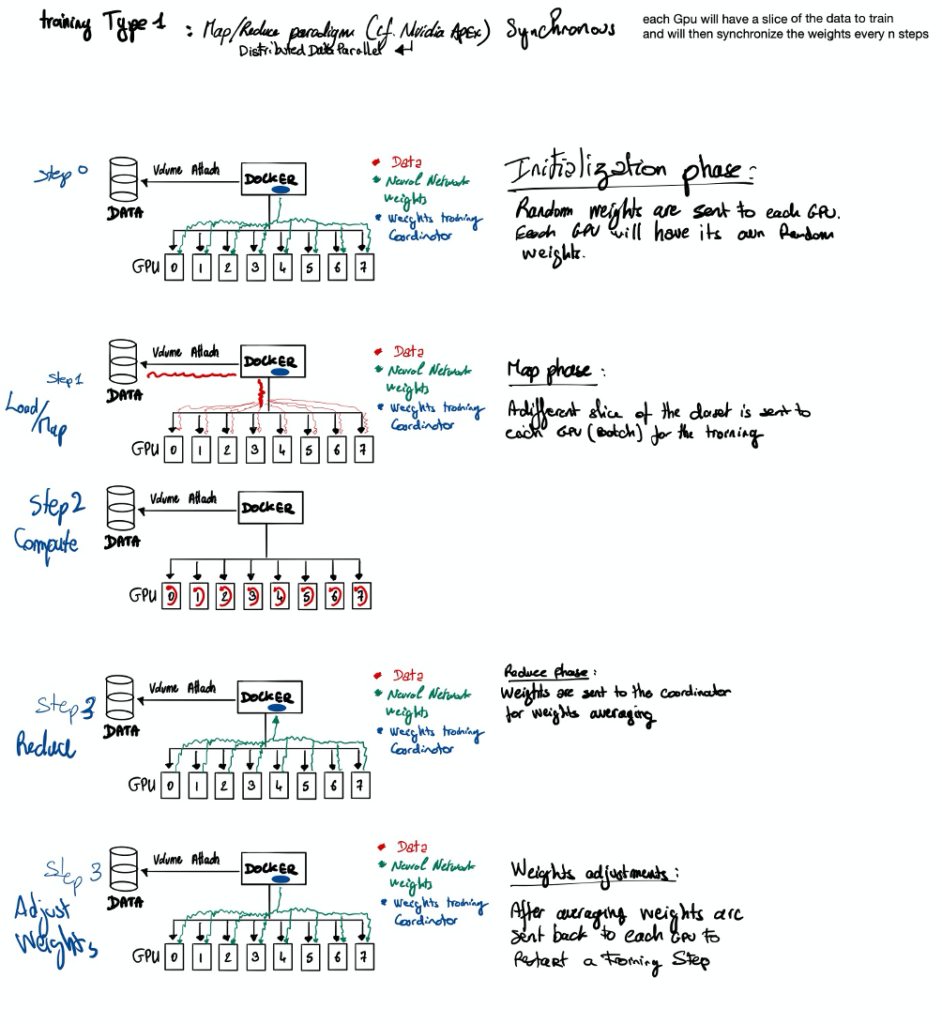 training Type 1 : Map/Reduce paradigm (cf. Nvidia Apex) Synchronous
Distributed Data Parallel
each Gpu will have a slice of the data to train
and will then synchronize the weights every n steps
Step 0
DATA
Volume Attach
DOCKER
GPU 0 1 2 3 4 5 6 7
Data
Neural Network
weights
Weights training
Coordinator
Initialization phase:
Random weights are sent to each GPU.
Each GPU will have its own Random
weights.
Step 1
Load/
Map
DATA
Volume Attach
DOCKER
GPU 0 1 2 3 4 5 6 7
Data
Neural Network
weights
Weights training
Coordinator
Map phase :
A different slice of the dataset is sent to
each GPU (Batch) for the training
Step 2
Compute
DATA
Volume Attach
DOCKER
GPU 0 1 2 3 4 5 6 7
Step 3
Reduce
DATA
Volume Attach
DOCKER
GPU 0 1 2 3 4 5 6 7
Data
Neural Network
weights
Weights training
Coordinator
Reduce phase :
Weights are sent to the coordinator
for weights averaging
Step 3
Adjust
Weights
DATA
Volume Attach
DOCKER
GPU 0 1 2 3 4 5 6 7
Data
Neural Network
weights
Weights training
Coordinator
Weights adjustments :
After averaging weights are
sent back to each GPU to
Restart a Training Step